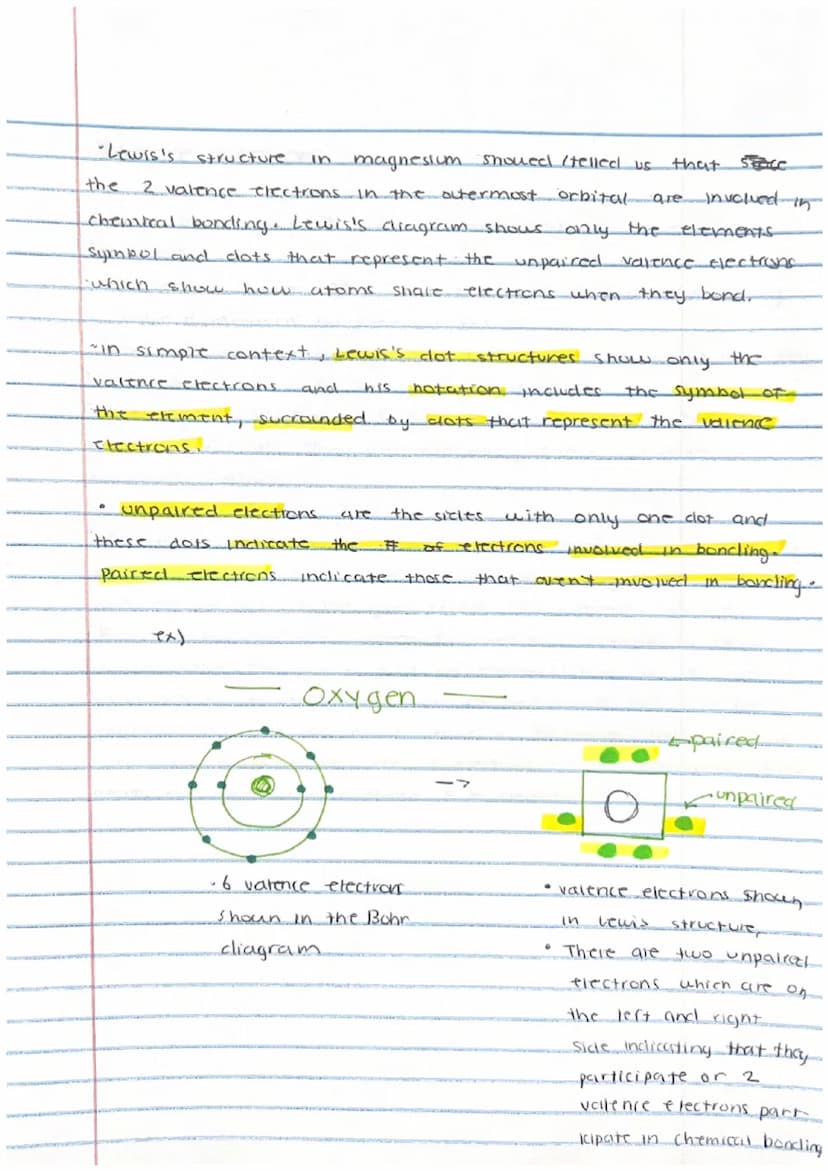 •Lewis's structure in magnesium showed/telled us that
the 2 valence electrons in the outermost orbital are involved in
chemical bonding. Lewis's diagram shows only the elements
symbol and dots that represent the unpaired valence electrons
which show how atoms share electrons when they bond.
-in simple context, Lewis's dot structures show only the
valence electrons and his notation includes the symbol of
the element, surrounded by dots that represent the valence
electrons.
• unpaired electrons are the sides with only one dot and
these dots indicate the # of electrons involved in bonding.
paired electrons indicate those that aren't involved in bonding.
ex)
— Oxygen —
←paired
->
O
←unpaired
•6 valence electrons
shown in the Bohr
diagram
• valence electrons shown
in Lewis structure,
• There are two unpaired
electrons which are on
the left and right
side indicating that they
participate or 2
valence electrons part-
icipate in chemical bonding